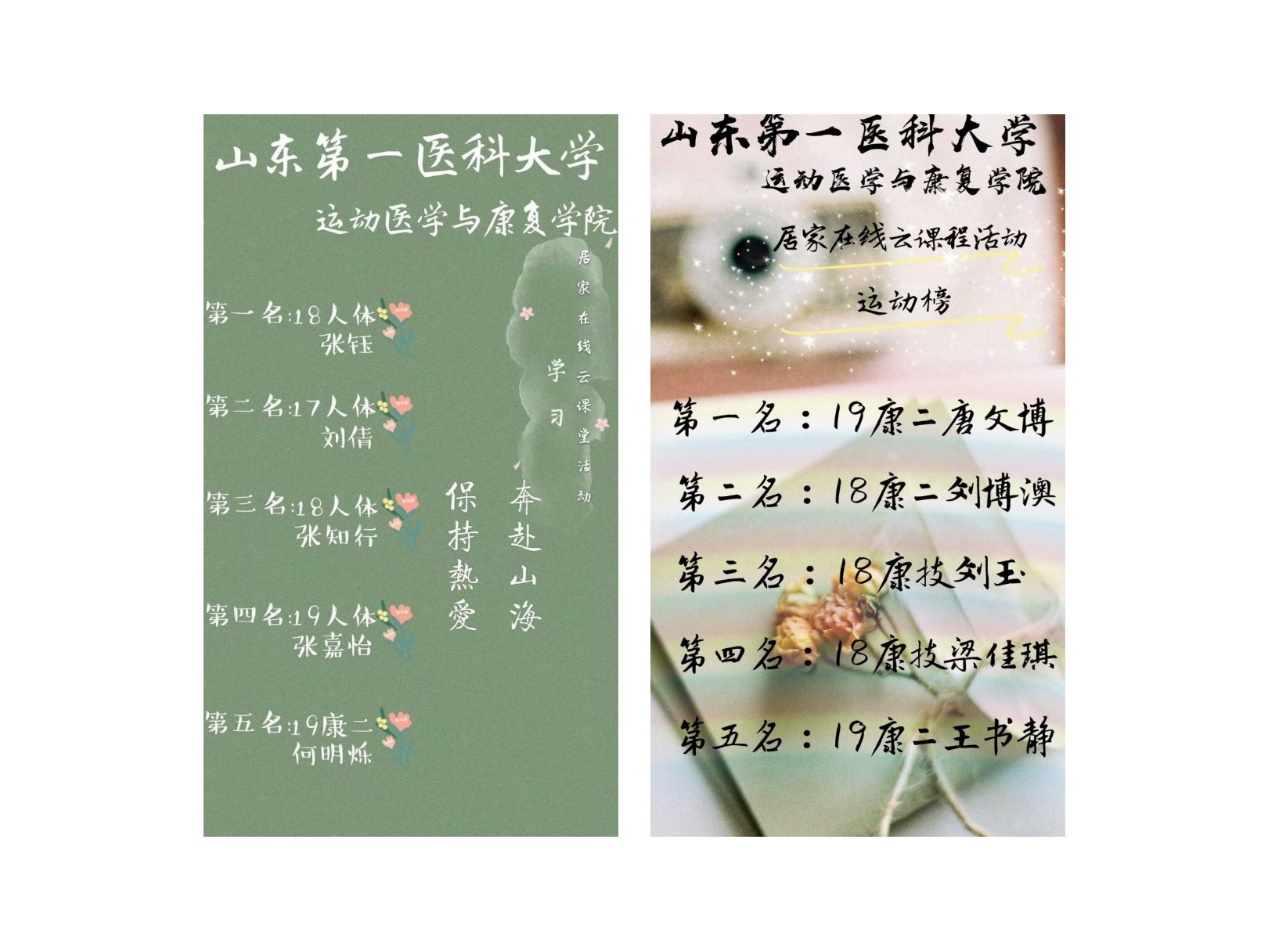 山东第一医科大学
运动医学与康复学院
居家在线云课堂活动
学习
第一名:18人体
张钰
第二名:17人体
刘倩
第三名:18人体
张知行
第四名:19人体
张嘉怡
第五名:19康二
何明烁
奔赴山海
保持熱愛
山东第一医科大学
运动医学与康复学院
居家在线云课程活动
运动榜
第一名：19康二唐文博
第二名：18康二刘博澳
第三名：18康技刘玉
第四名：18康技梁佳琪
第五名：19康二王书静